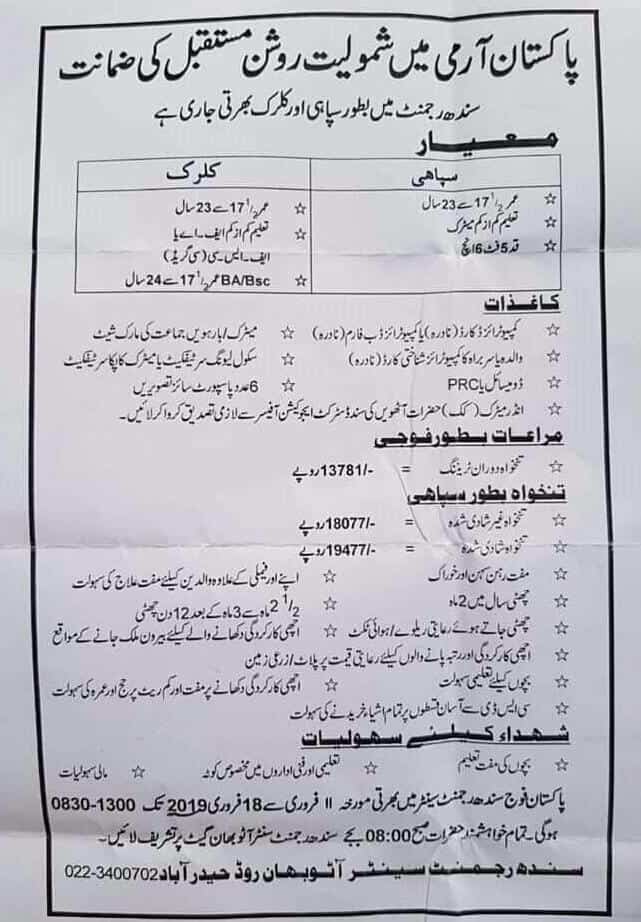 پاکستان آرمی میں شمولیت روشن مستقبل کی ضمانت
سندھ رجمنٹ میں بطور سپاہی اور کلرک بھرتی جاری ہے
معیار
سپاہی
☆ عمر 17 1/2 سے 23 سال
☆ تعلیم کم از کم میٹرک
☆ قد 5 فٹ 6 انچ
کلرک
☆ عمر 17 1/2 سے 23 سال
☆ تعلیم کم از کم ایف۔اے یا
ایف۔ایس۔سی (سی گریڈ)
☆ BA/Bsc عمر 17 1/2 سے 24 سال
کاغذات
☆ کمپیوٹرائزڈ کارڈ (نادرہ) یا کمپیوٹرائزڈ ب فارم (نادرہ) ☆ میٹرک/بارہویں جماعت کی مارک شیٹ
☆ والد یا سربراہ کا کمپیوٹرائز شناختی کارڈ (نادرہ) ☆ سکول لیونگ سرٹیفکیٹ یا میٹرک کا پکا سرٹیفکیٹ
☆ ڈومیسائل یا PRC ☆ 6 عدد پاسپورٹ سائز تصویریں
☆ انڈر میٹرک (کک) حضرات آٹھویں کی سند ڈسٹرکٹ ایجوکیشن آفیسر سے لازمی تصدیق کروا کر لائیں۔
مراعات بطور فوجی
☆ تنخواہ دوران ٹریننگ = 13781/- روپے
تنخواہ بطور سپاہی
☆ تنخواہ غیر شادی شدہ = 18077/- روپے
☆ تنخواہ شادی شدہ = 19477/- روپے
☆ مفت رہن سہن اور خوراک ☆ اپنے اور فیملی کے علاوہ والدین کیلئے مفت علاج کی سہولت
☆ چھٹی سال میں 2 ماہ ☆ 2 1/2 ماہ سے 3 ماہ کے بعد 12 دن چھٹی
☆ چھٹی جاتے ہوئے رعایتی ریلوے/ہوائی ٹکٹ ☆ اچھی کارکردگی دکھانے والے کیلئے بیرون ملک جانے کے مواقع
☆ اچھی کارکردگی اور رتبہ پانے والوں کیلئے رعایتی قیمت پر پلاٹ/زرعی زمین
☆ بچوں کیلئے تعلیمی سہولت ☆ اچھی کارکردگی دکھانے پر مفت اور کم ریٹ پر حج اور عمرہ کی سہولت
☆ سی ایس ڈی سے آسان قسطوں پر تمام اشیاء خریدنے کی سہولت
شھداء کیلئے سھولیات
☆ بچوں کی مفت تعلیم ☆ تعلیمی اور فنی اداروں میں مخصوص کوٹہ ☆ مالی سہولیات
پاکستان فوج سندھ رجمنٹ سینٹر میں بھرتی مورخہ 11 فروری سے 18 فروری 2019 تک 0830-1300
ہوگی۔ تمام خواہشمند حضرات صبح 08:00 بجے سندھ رجمنٹ سنٹر آٹو بھان گیٹ پر تشریف لائیں۔
سندھ رجمنٹ سینٹر آٹو بھان روڈ حیدرآباد 022-3400702